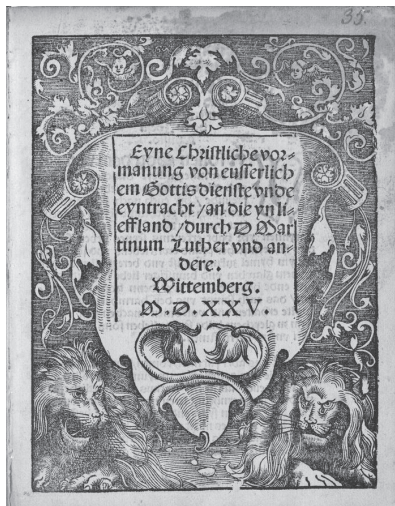 35.
Eyne Christliche vor=
manung von eusserlich
em Gottis dienste vnde
eyntracht /an die yn li=
effland /durch D Mar
tinum Luther vnd an=
dere.
Wittemberg.
M.D.XXV.